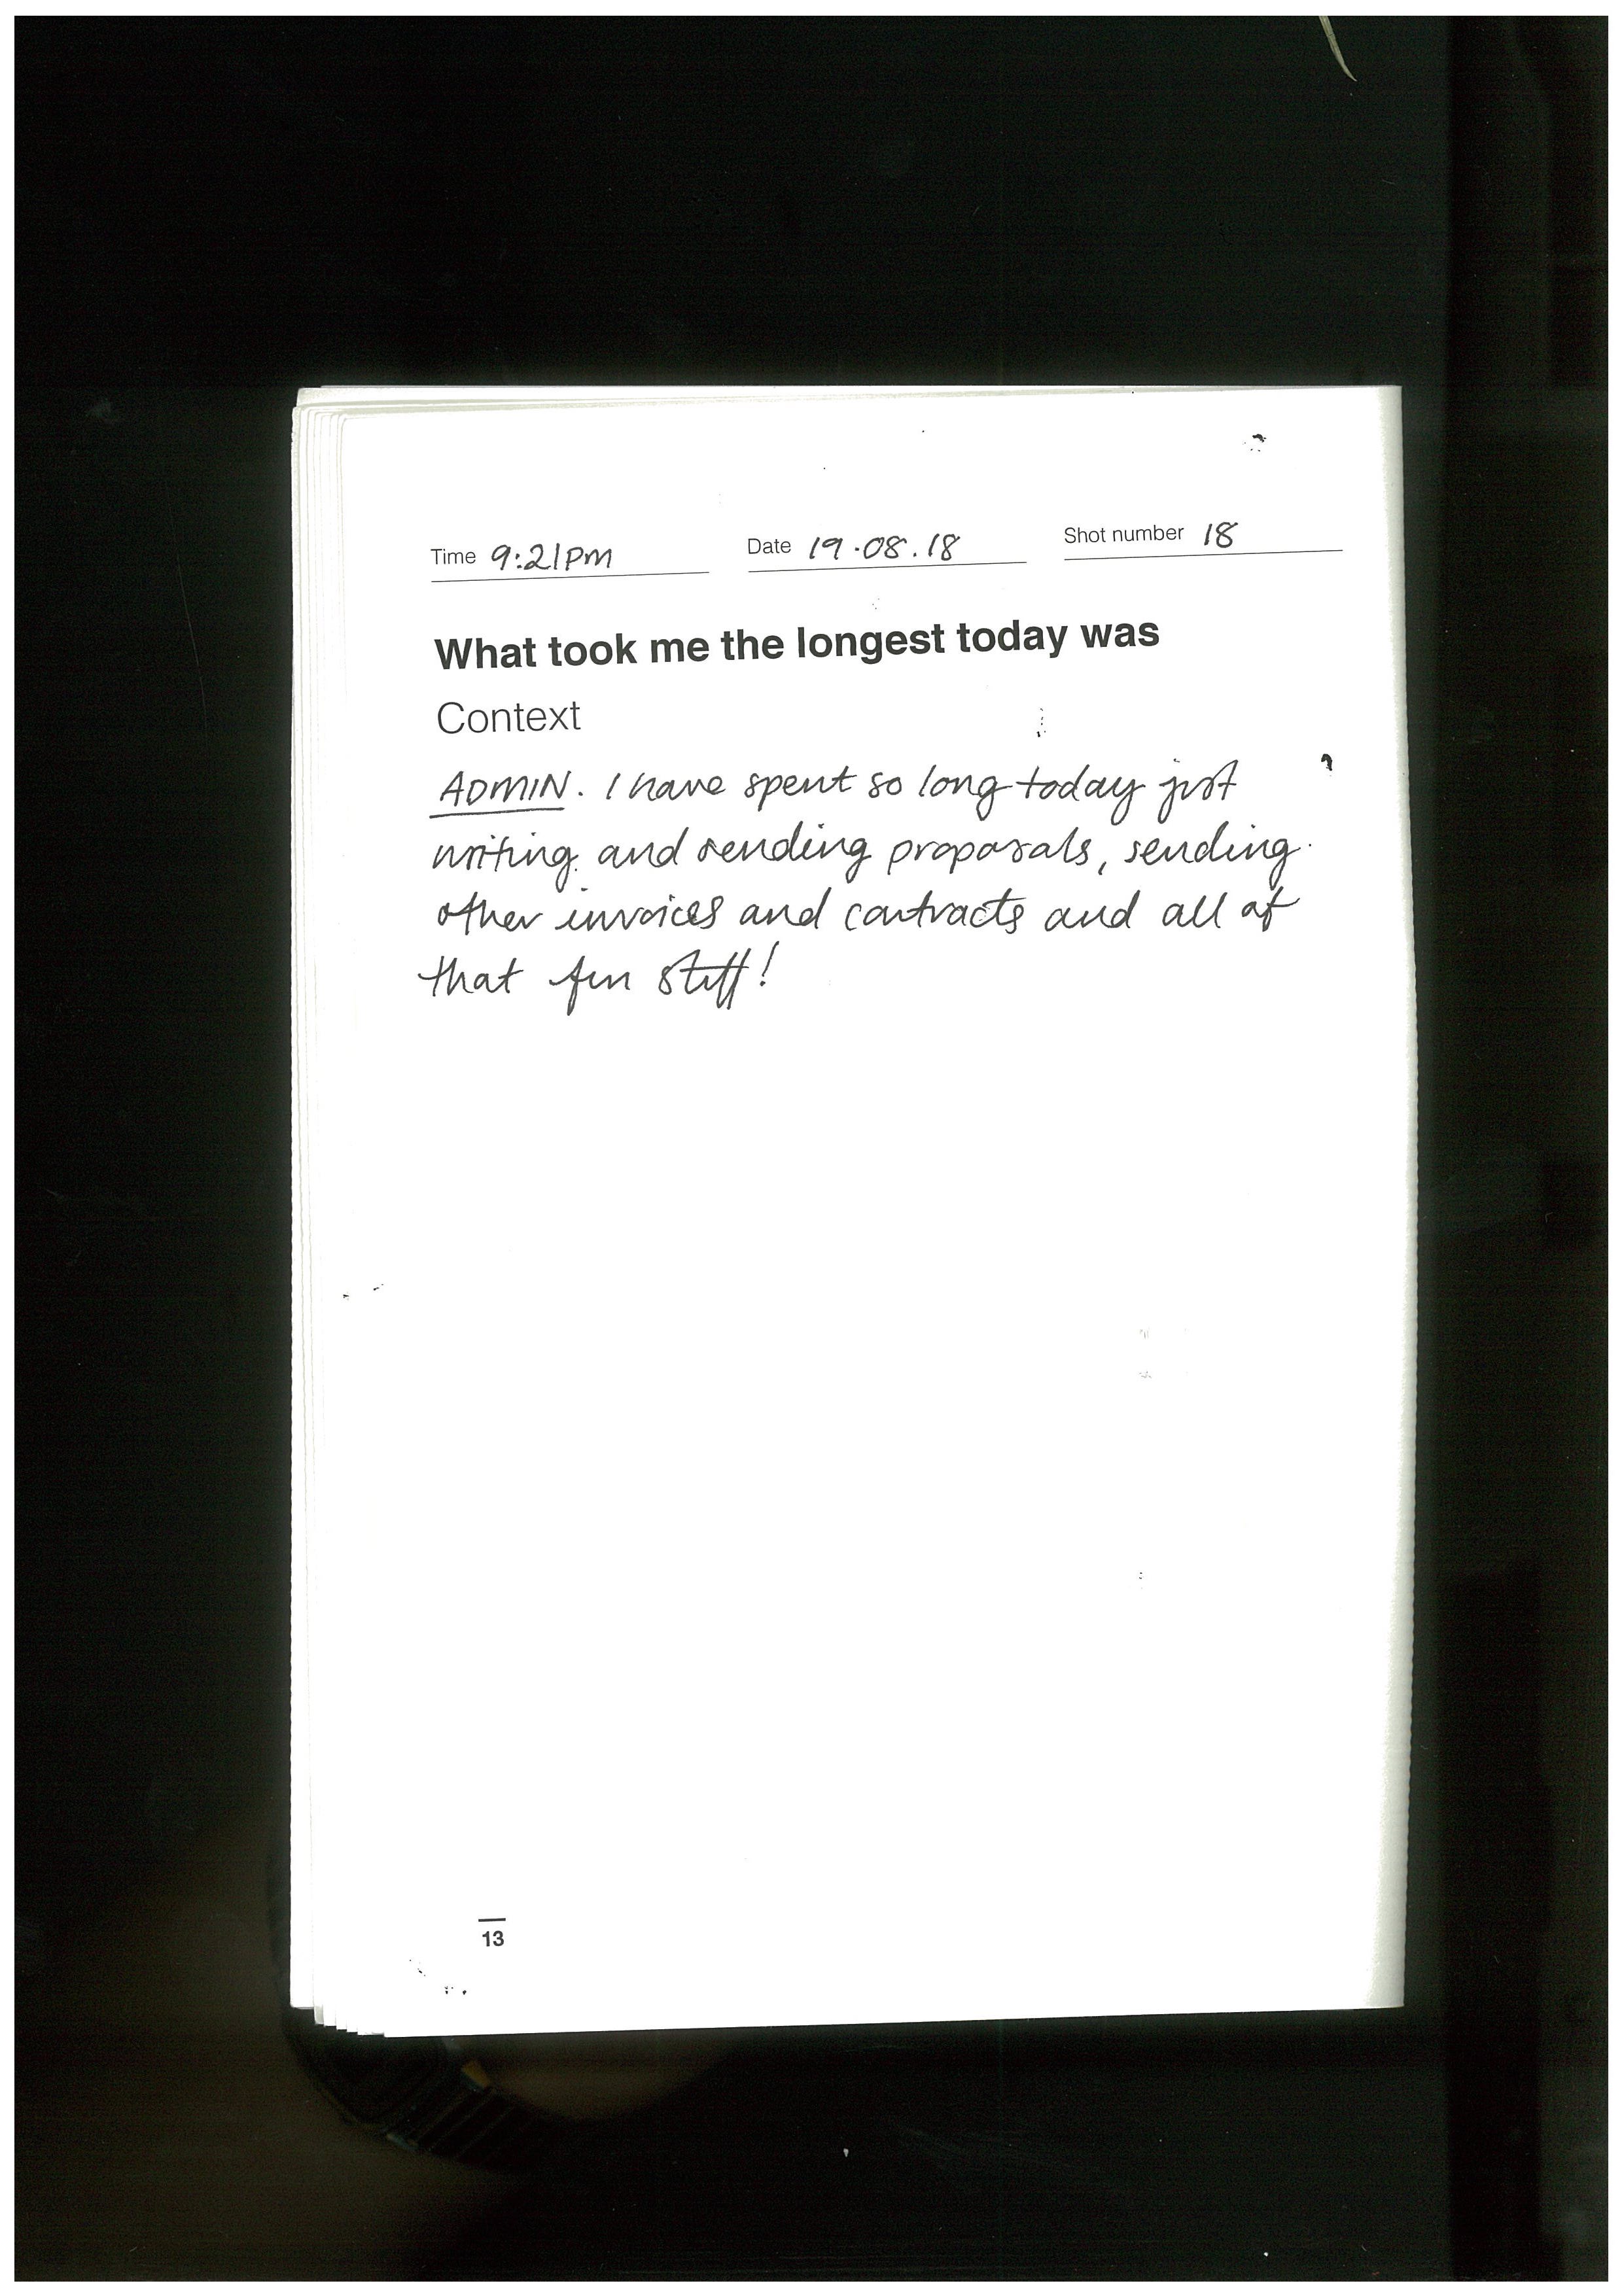 Time 9:21pm Date 19.08.18 Shot number 18
What took me the longest today was
Context
ADMIN. I have spent so long today just
writing and sending proposals, sending
other invoices and contracts and all of
that fun stuff!
13